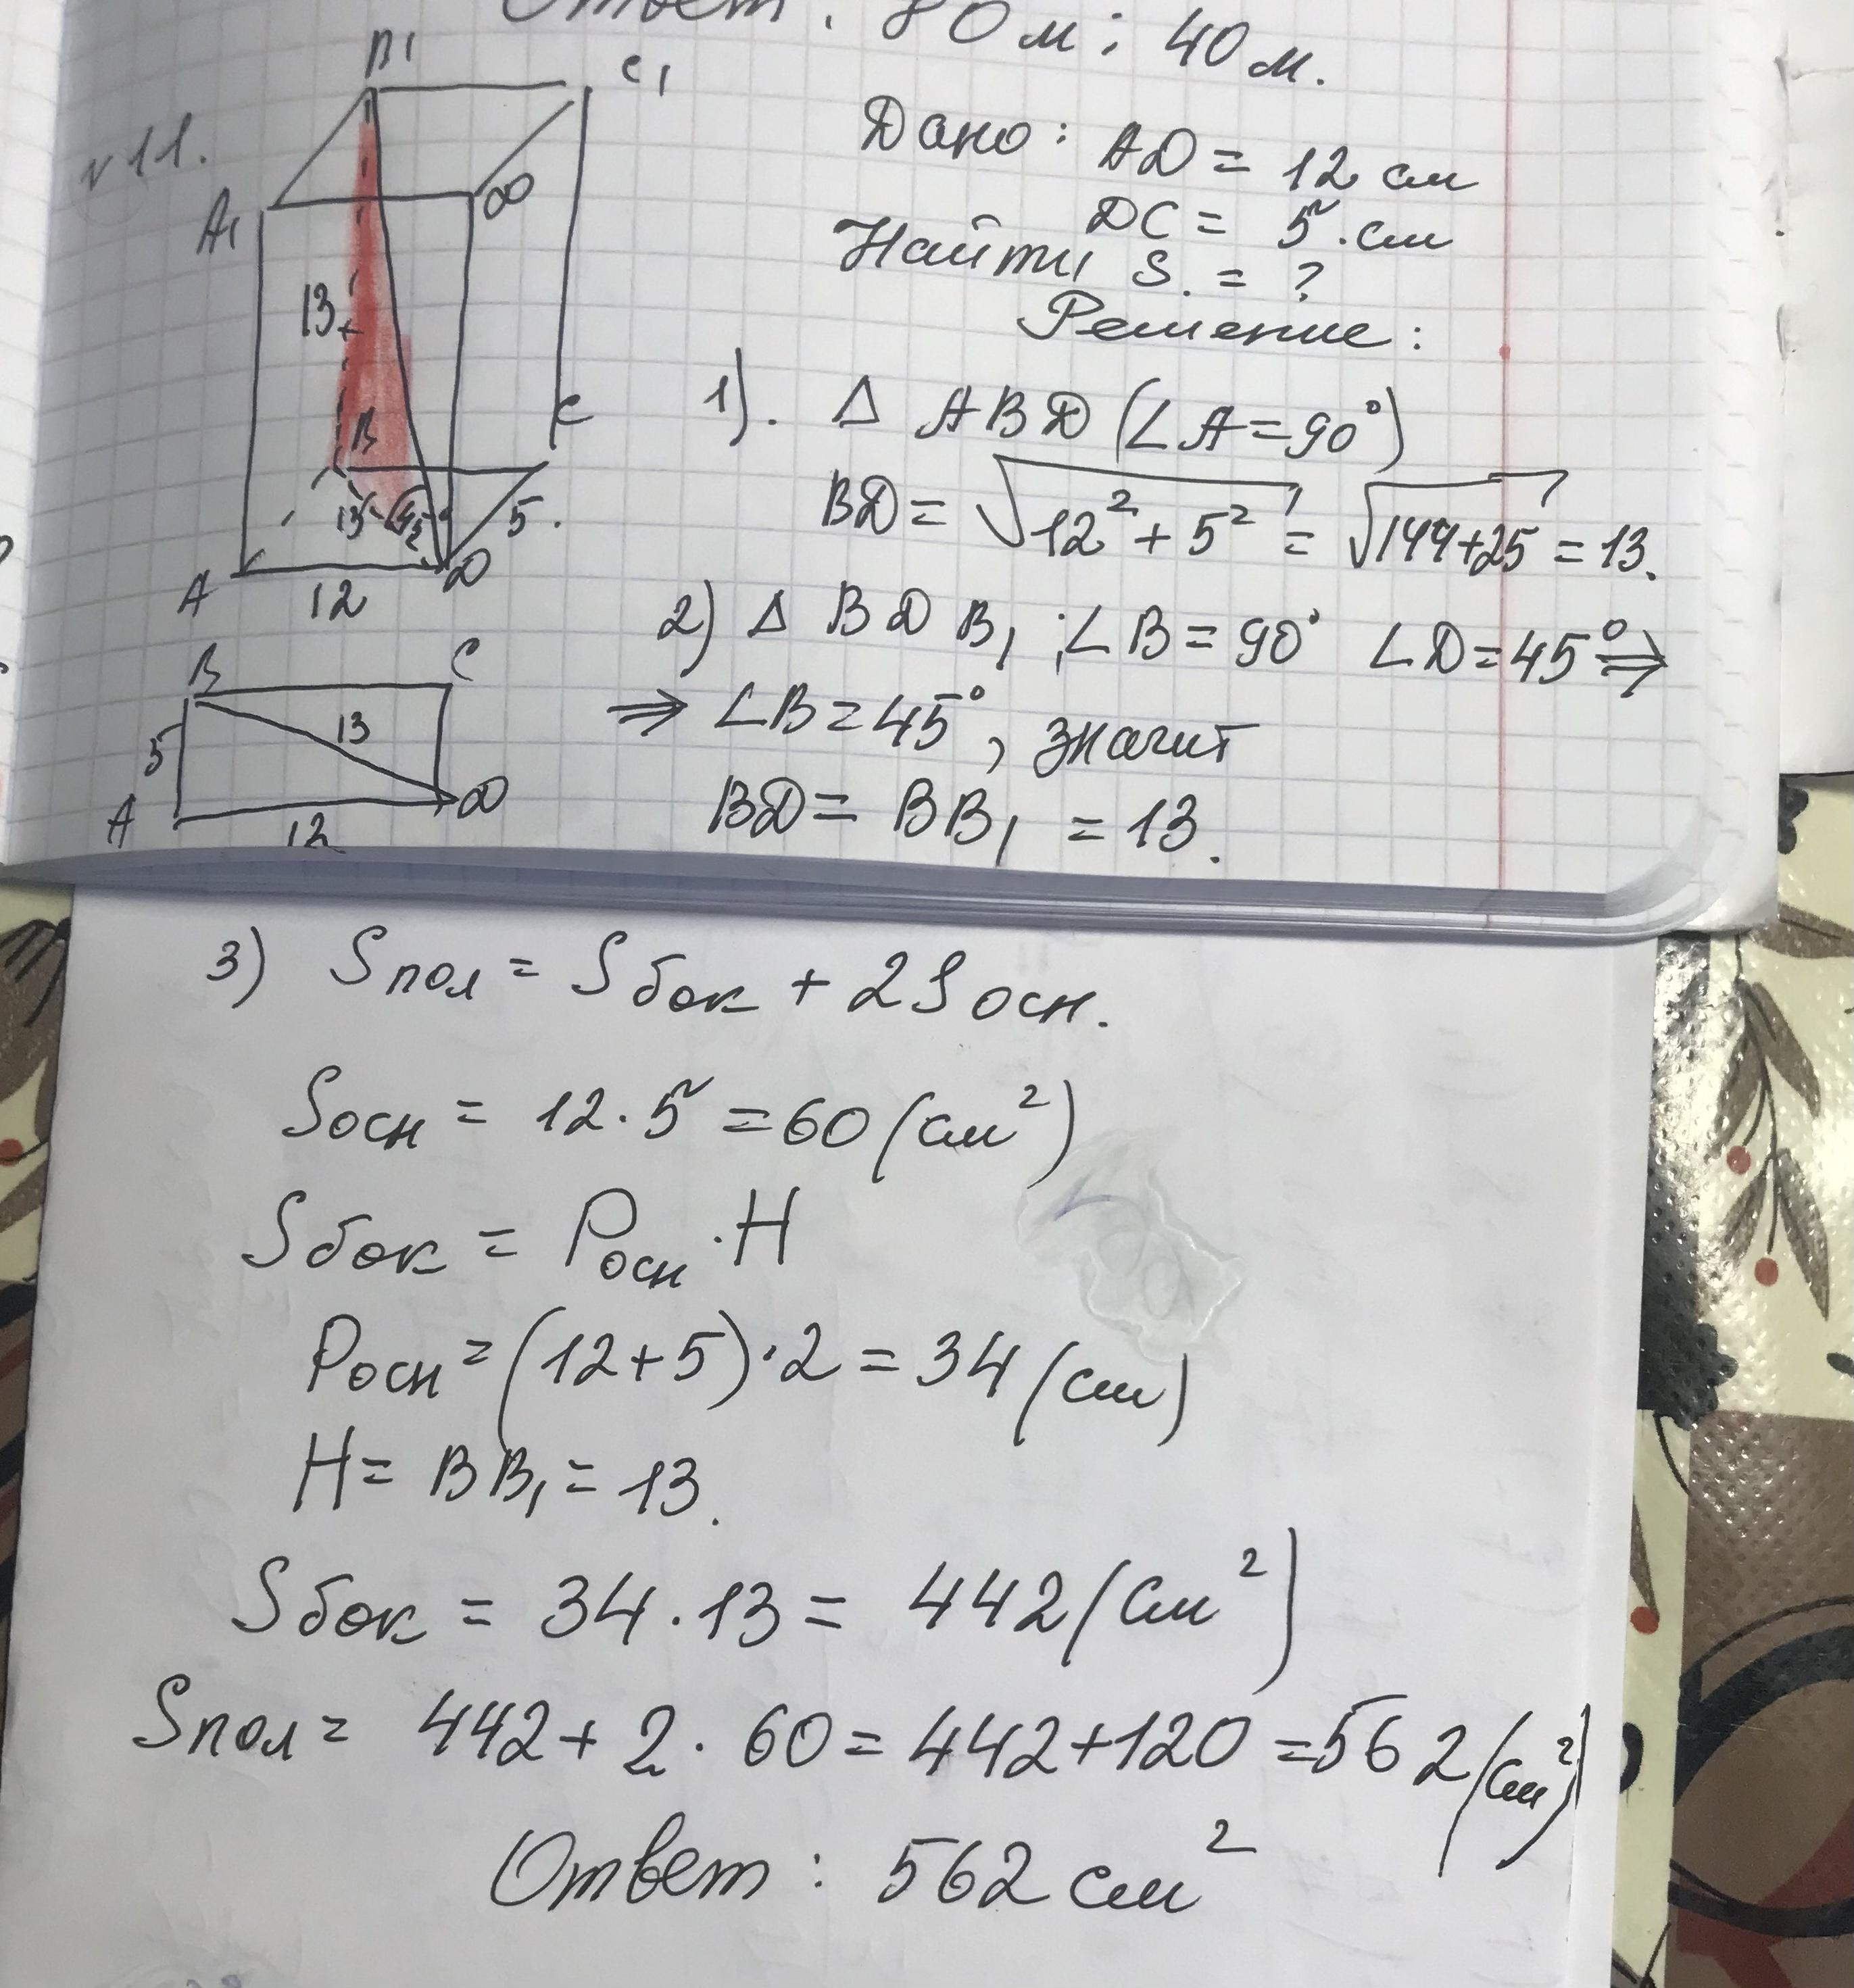 Ответ: 80 м; 40 м.
№11.
B1
C1
A1
D
13
B
C
13
45
5.
A
12
D
B
C
5
13
A
12
D
Дано: AD = 12 см
DC = 5 см
Найти S = ?
Решение:
1). Δ ABD (∠A=90°)
BD = √12² + 5² = √144+25 = 13.
2) Δ BDB₁; ∠B = 90° ∠D=45° ⇒
⇒ ∠B = 45°, значит
BD = BB₁ = 13.
3) Sпол = Sбок + 2Sосн.
Sосн = 12 · 5 = 60 (см²)
Sбок = Pосн · H
Pосн = (12+5)·2 = 34 (см)
H = BB₁ = 13.
Sбок = 34 · 13 = 442 (см²)
Sпол = 442 + 2 · 60 = 442+120 = 562 (см²)
Ответ: 562 см²